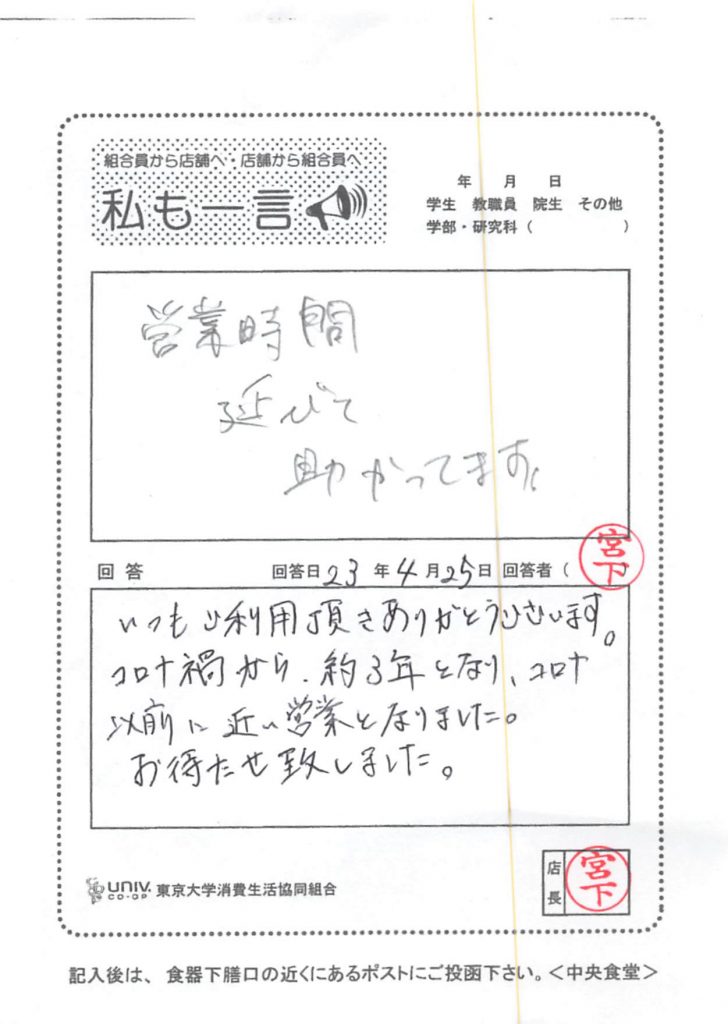 組合員から店舗へ・店舗から組合員へ
私も一言
年 月 日
学生 教職員 院生 その他
学部・研究科（ ）
営業時間
延びて
助かってます。
回答 回答日 23 年 4 月 25 日 回答者（ 宮下
いつもご利用頂きありがとうございます。
コロナ禍から、約3年となり、コロナ
以前に近い営業となりました。
お待たせ致しました。
店長 宮下
UNIV. CO-OP 東京大学消費生活協同組合
記入後は、食器下膳口の近くにあるポストにご投函下さい。＜中央食堂＞